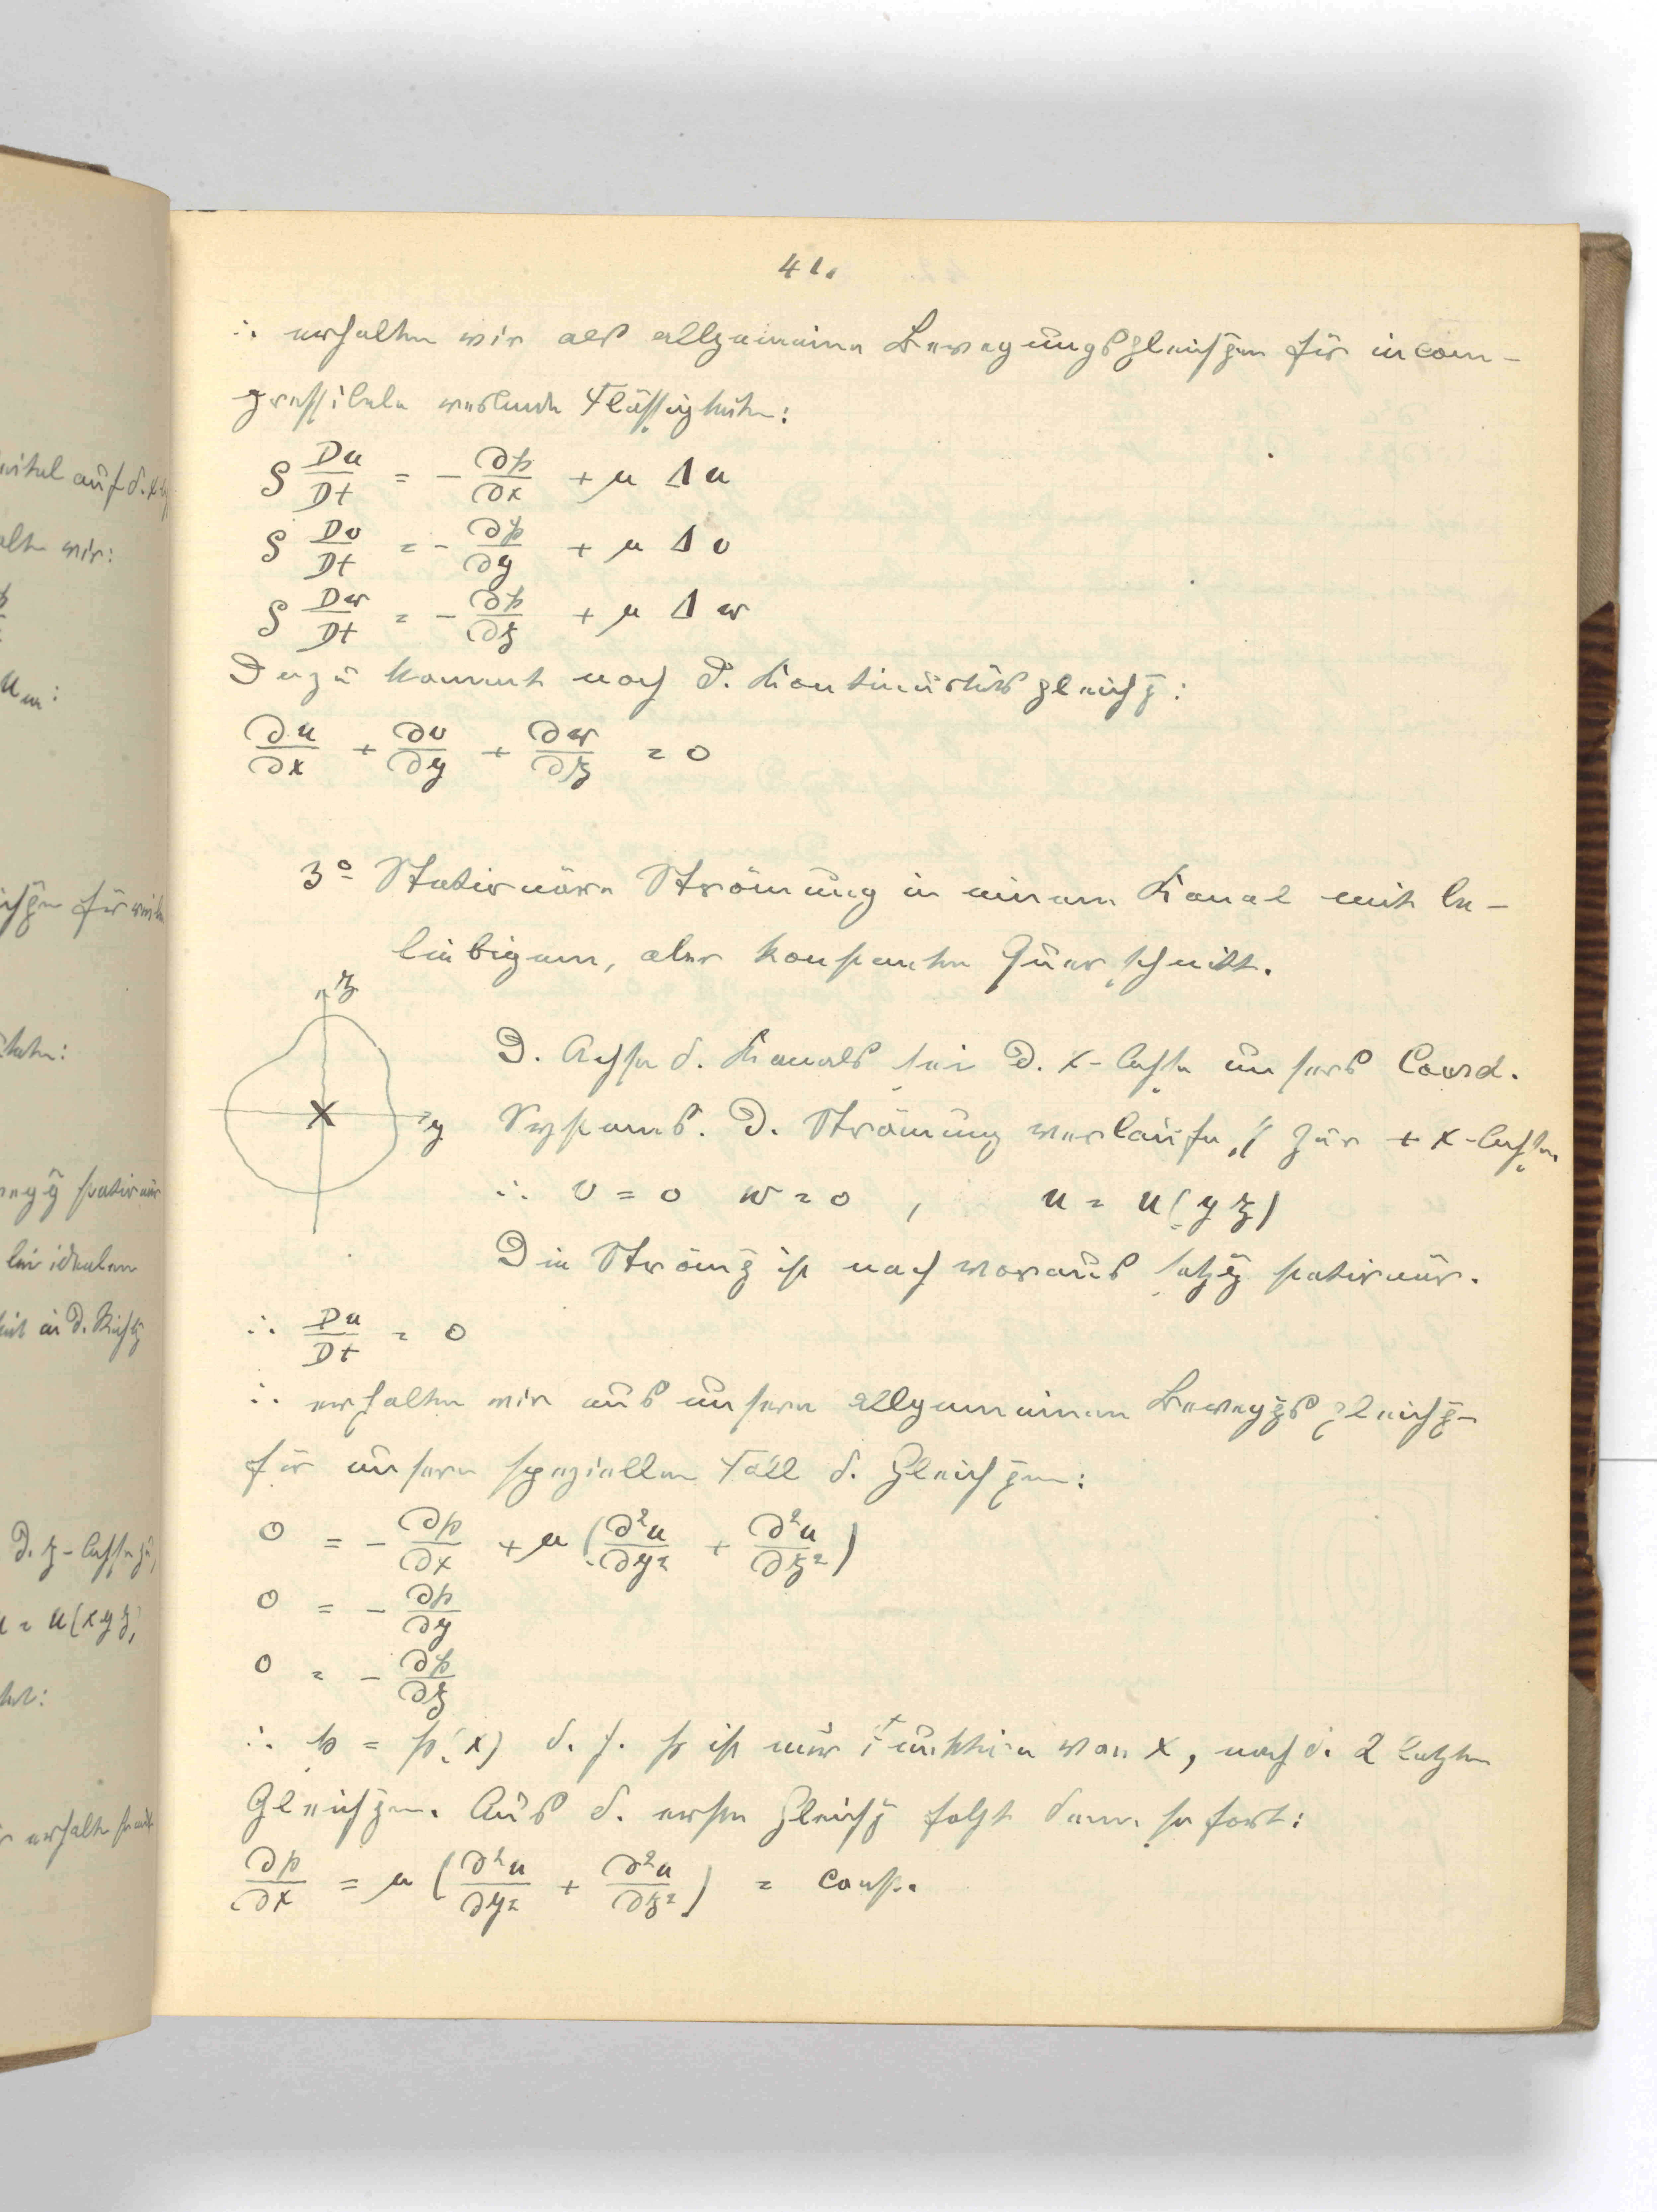 41.
∴ erhalten wir als allgemeine Bewegungsgleichgen für incom-
pressibele reibende Flüssigkeiten:
ρ Du/Dt = - ∂p/∂x + μ Δ u
ρ Dv/Dt = - ∂p/∂y + μ Δ v
ρ Dw/Dt = - ∂p/∂z + μ Δ w
Dazu kommt noch d. Kontinuitätsgleichg:
∂u/∂x + ∂v/∂y + ∂w/∂z = 0
3° Stationäre Strömung in einem Kanal mit be-
liebigem, aber konstanten Querschnitt.
z
y
x
D. Achse d. Kanals sei D. x-Achse unsers Coord.
Systems. D. Strömung verlaufe // zur + x-Achse.
∴ v = 0 w = 0 , u = u(y z)
Die Strömg ist nach Voraussetzg stationär.
∴ Du/Dt = 0
∴ erhalten wir aus unsern allgemeinen Bewegsgleichg-
für unsern speziellen Fall d. Gleichgen:
0 = - ∂p/∂x + μ (∂²u/∂y² + ∂²u/∂z²)
0 = - ∂p/∂y
0 = - ∂p/∂z
∴ p = p(x) d. h. p ist nur Funktion von x, nach d. 2 letzten
Gleichgen. Aus d. ersten Gleichg folgt dann sofort:
∂p/∂x = μ (∂²u/∂y² + ∂²u/∂z²) = const.
auf d.
wir:
für
bei idealen
in d. Richtg
D. z-Achse
u = u(x y z)
erhalten